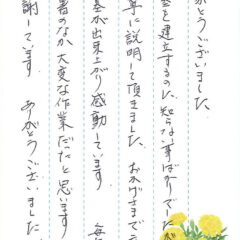 がとうございました。
を建立するのに、知らない事ばかりでした
寧に説明して頂きました。おかげさまで
基が出来上がり感動しています。
暑のなか大変な作業だったと思います
謝しています。ありがとうございました